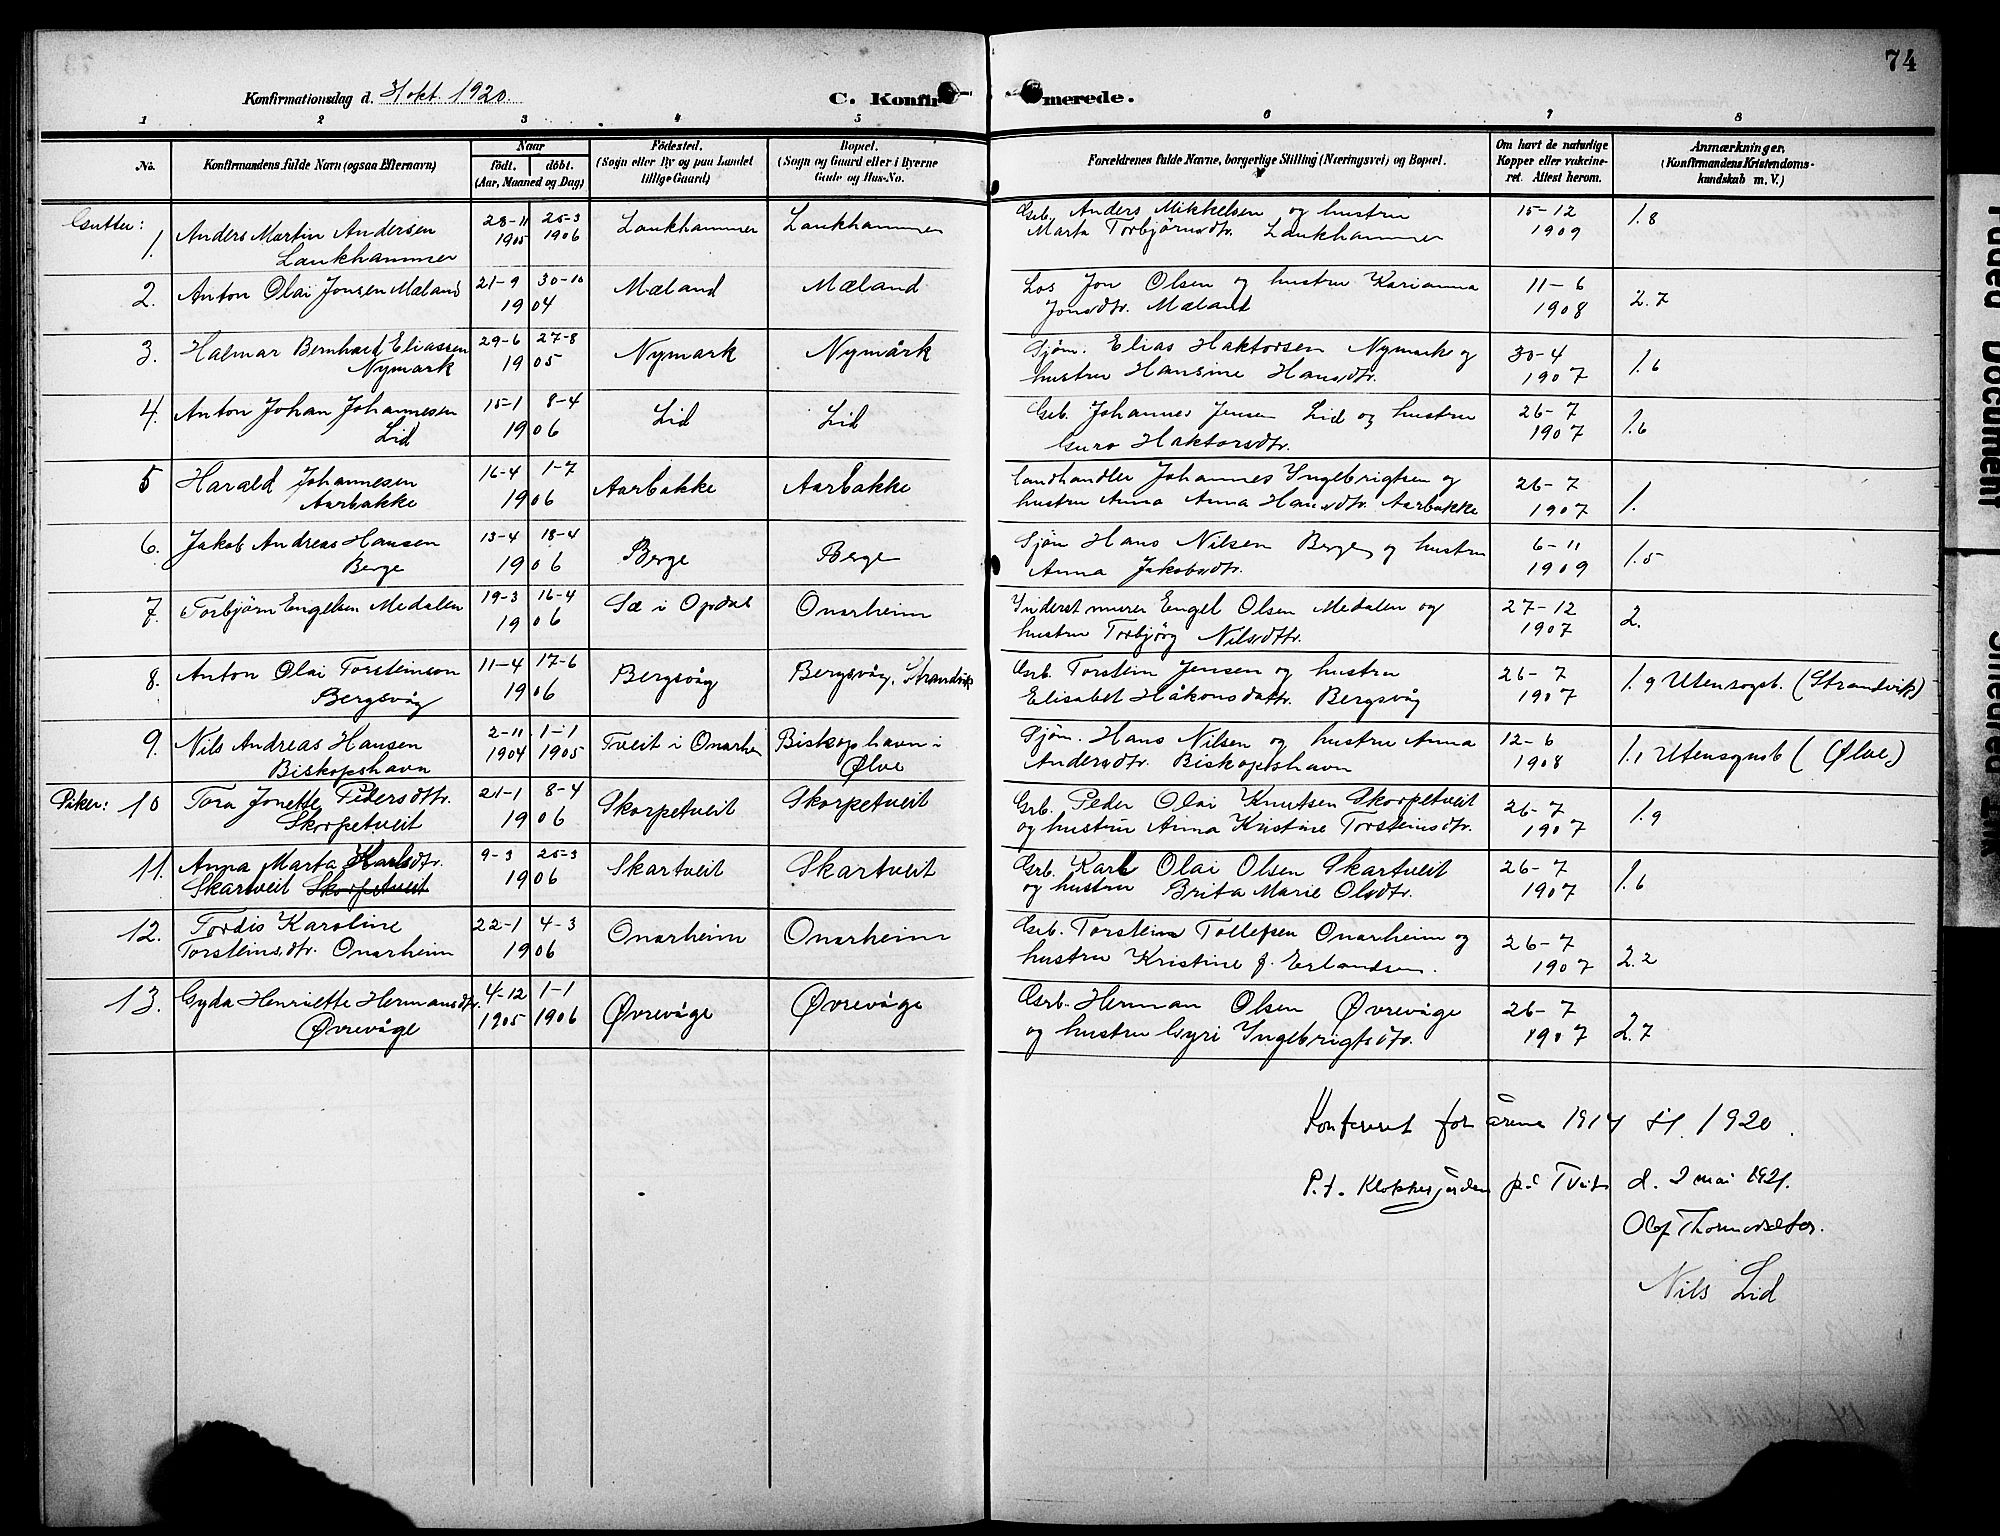 74
Konfirmationsdag d. 3/okt. 1920.
C. Konfirmerede.
1 2 3 4 5 6 7 8
No.
Konfirmandens fulde Navn (ogsaa Efternavn)
Naar
födt. döbt.
(Aar, Maaned og Dag)
Födested.
(Sogn eller By og paa Landet
tillige Gaard)
Bopæl.
(Sogn og Gaard eller i Byerne
Gade og Hus-No.
Forældrenes fulde Navne, borgerlige Stilling (Næringsvei) og Bopæl.
Om havt de naturlige
Kopper eller vakcine-
ret. Attest herom.
Anmærkninger,
(Konfirmandens Kristendoms-
kundskab m. V.)
Gutter:
1. Anders Martin Andersen
Laukhammer
28-11 1905 25-3 1906
Laukhammer
Laukhammer
Grb. Anders Mikkelsen og hustru
Marta Torbjörnsdtr. Laukhammer
15-12
1909
1.8
2. Anton Olai Jonsen Mæland
21-9 30-10
1904
Mæland
Mæland
Los Jon Olsen og hustru Karianna
Jonsdtr. Mæland
11-6
1908
2.7
3. Halmar Bernhard Eliassen
Nymark
29-6 27-8
1905
Nymark
Nymark
Sjöm. Elias Haktorsen Nymark og
hustru Hansine Hansdtr.
30-4
1907
1.6
4. Anton Johan Johannesen
Lid
15-1 8-4
1906
Lid
Lid
Grb. Johannes Jensen Lid og hustru
Guro Haktorsdtr.
26-7
1907
1.6
5 Harald Johannesen
Aarbakke
16-4 1-7
1906
Aarbakke
Aarbakke
Landhandler Johannes Yngebrigtsen og
hustru Anna Anna Hansdtr. Aarbakke
26-7
1907
1.
6. Jakob Andreas Hansen
Berge
13-4 18-4
1906
Berge
Berge
Sjöm Hans Nilsen Berge og hustru
Anna Jakobsdtr.
6-11
1909
1.5
7. Torbjörn Engelsen Medalen
19-3 16-4
1906
Sæ i Opdal
Onarheim
Ynderst murer Engel Olsen Medalen og
hustru Torbjörg Nilsdtr.
27-12
1907
2.
8. Anton Olai Torsteinson
Bergsvåg
11-4 17-6
1906
Bergsvåg
Bergsvåg, Strandvik
Grb. Torstein Jensen og hustru
Elisabet Håkonsdattr. Bergsvåg
26-7
1907
1.9 Utensogsb. (Strandvik)
9. Nils Andreas Hansen
Biskopshavn
2-11 1904 1-1 1905
Tveit i Onarhei
Biskopshavn i
Ølve
Sjöm. Hans Nilsen og hustru Anna
Andersdtr. Biskopshavn
12-6
1908
1.1 Utensognsb (Ølve)
Piker:
10 Tora Jonette Pedersdtr.
Skorpetveit
21-1 8-4
1906
Skorpetveit
Skorpetveit
Grb. Peder Olai Knutsen Skorpetveit
og hustru Anna Kristine Torsteinsdtr.
26-7
1907
1.9
11. Anna Marta Karlsdtr.
Skartveit Skorpetveit
9-3 25-3
1906
Skartveit
Skartveit
Grb. Karl Olai Olsen Skartveit
og hustru Brita Marie Olsdtr.
26-7
1907
1.6
12. Tordis Karoline
Torsteinsdtr. Onarheim
22-1 4-3
1906
Onarheim
Onarheim
Grb. Torstein Tollefsen Onarheim og
hustru Kristine f. Erlandsen.
26-7
1907
2.2
13. Gyda Henriette Hermansdtr.
Øvrevåge
4-12 1905 1-1 1906
Øvrevåge
Øvrevåge
Grb. Herman Olsen Øvrevåge
og hustru Gyri Yngebrigtsdtr.
26-7
1907
2.7
Konferert for årene 1914 til 1920.
P.t. Klokkergården på Tveit d. 2 mai 1921.
Nils Lid
Faded Document
Skjeared